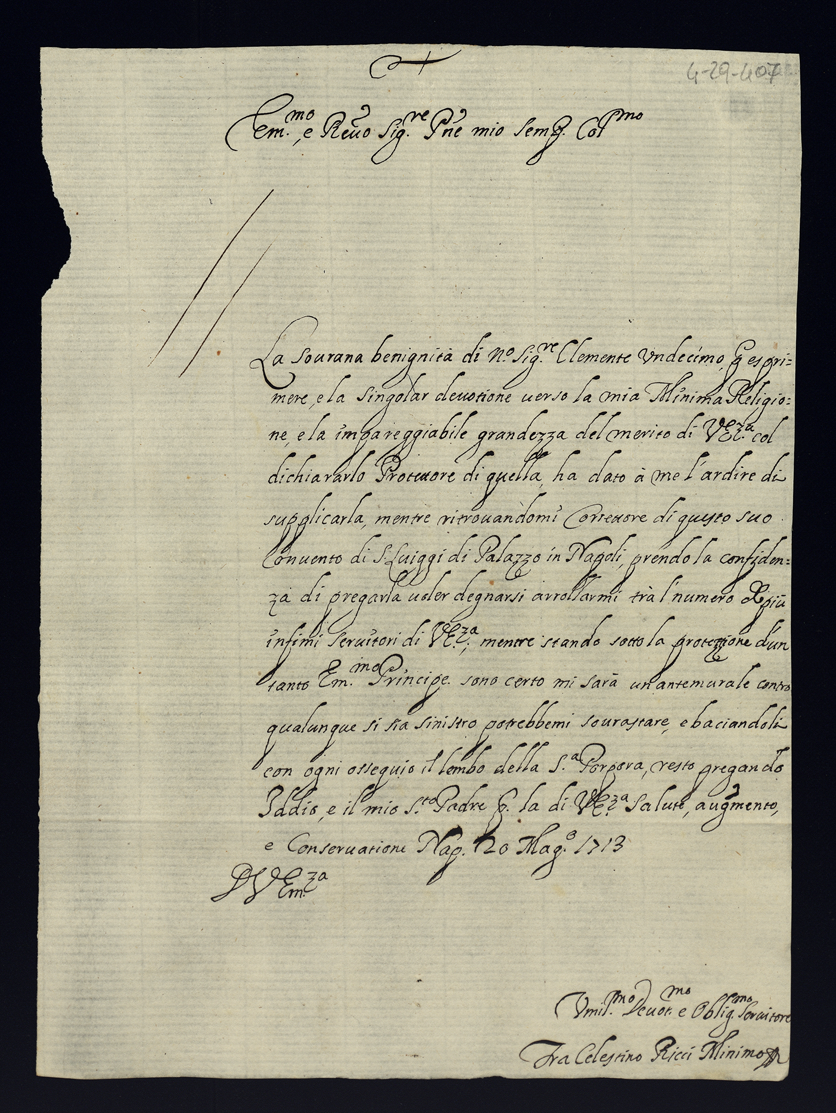 4-29-407
Em.mo, e Reu.o Sig.re Pne mio semp. Col.mo
La sourana benignità di N.o Sig.re Clemente Undecimo, p espri=
mere, e la singolar deuotione uerso la mia Minima Religio=
ne, e la impareggiabile grandezza del merito di V.Em.za col
dichiararlo Protettore di quella, ha dato à me l'ardire di
supplicarla, mentre ritrouandomi Correttore di questo suo
Conuento di S. Luiggi di Palazzo in Napoli, prendo la confiden=
za di pregarla uoler degnarsi arrollarmi trà l'numero de più
infimi seruitori di V.Em.za, mentre stando sotto la protezzione d'un
tanto Em.mo Principe. sono certo mi sarà un'antemurale contro
qualunque si sia sinistro potrebbemi sourastare, e baciandoli
con ogni ossequio il lembo della S.a Porpora, resto pregando
Iddio, e il mio S.to Padre p. la di V.Em.za Salute, augmento,
e Conseruatione Nap. 20 Mag.o 1713
D V Em.za
Umil.mo Deuot.mo e Oblig.mo Seruitore
Fra Celestino Ricci Minimo